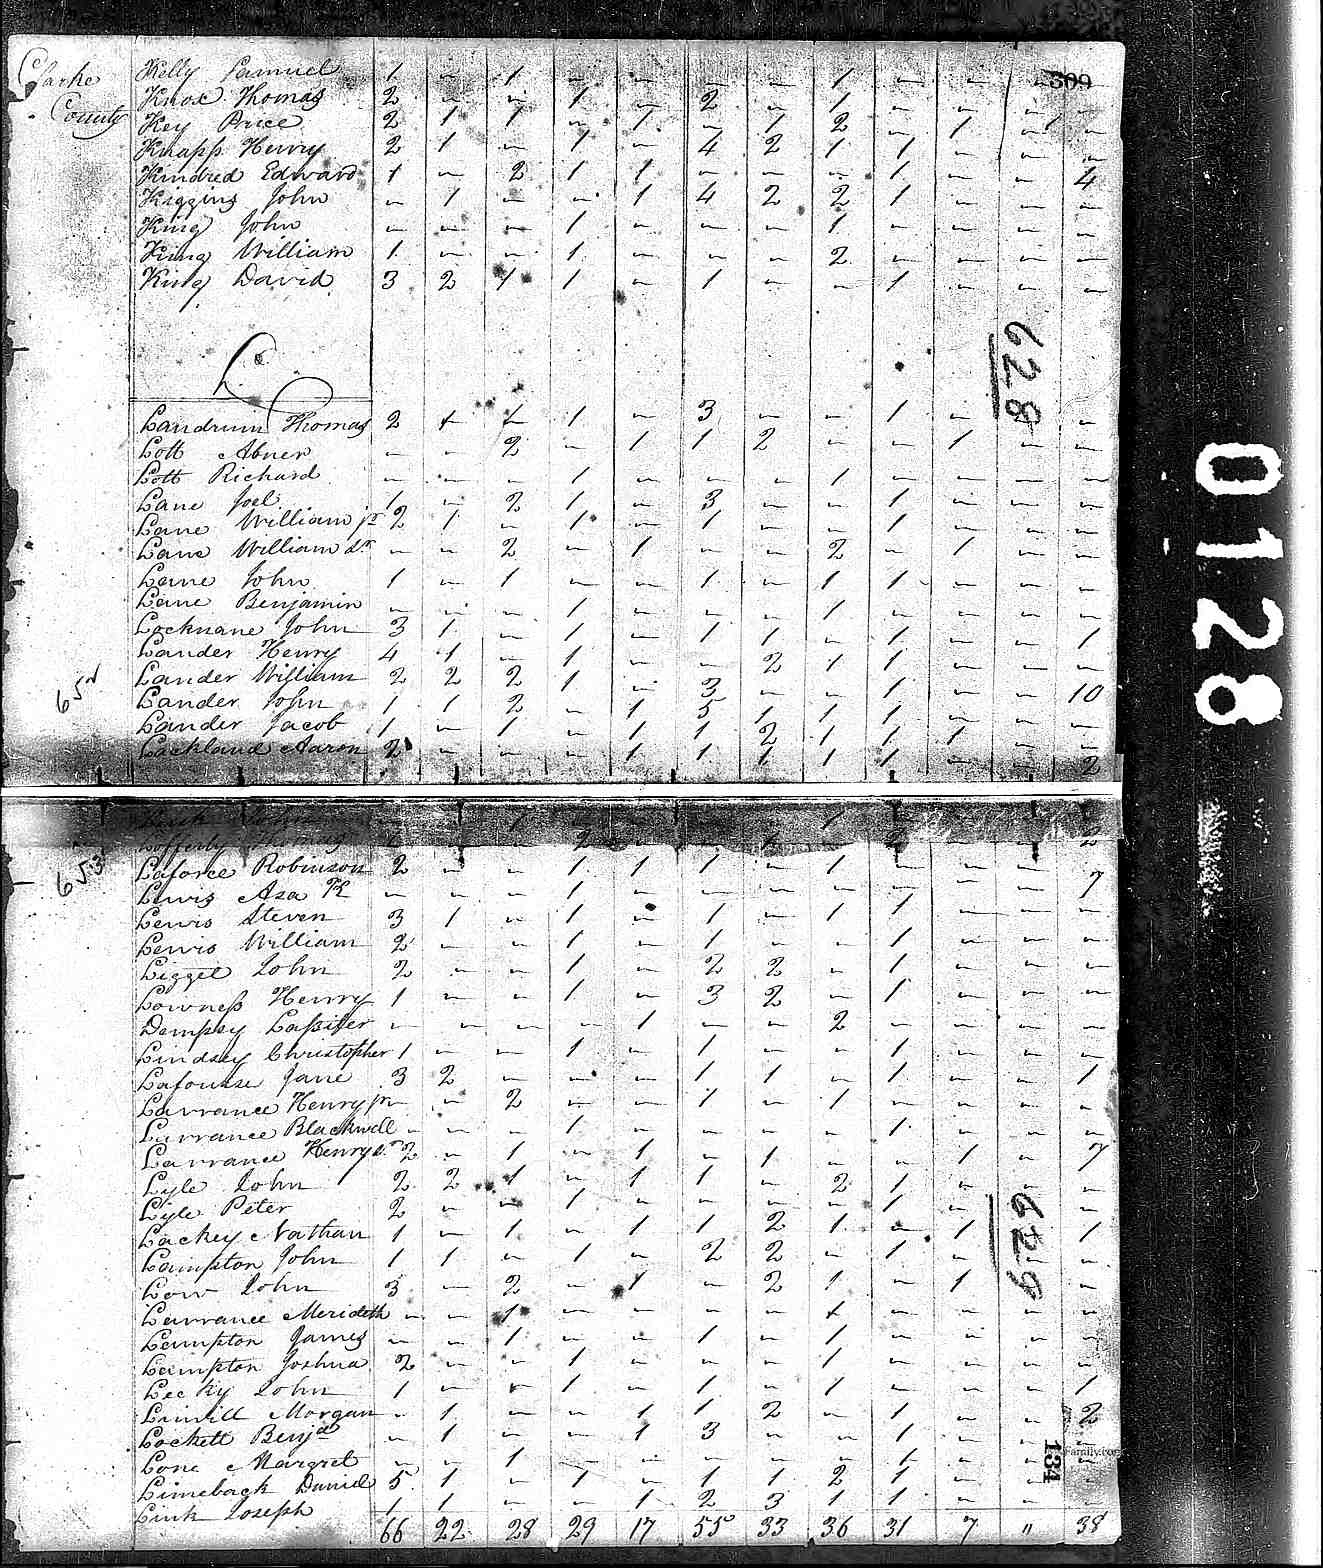 Clarke County
309
Kelly Samuel 1 – 1 – – – – 1 – – – –
Knox Thomas 2 – – 1 – 2 – 1 – – – –
Key Price 2 1 1 – 1 – 1 2 – 1 – –
Knapp Henry 2 1 – 1 – 4 2 1 1 – – –
Kindred Edward 1 – 2 1 1 – – – 1 – – 4
Kiggins John – 1 – – 1 4 2 2 1 – – –
King John – – – 1 – – – 1 – – – –
King William 1 – – 1 – – – 2 – – – –
King David 3 2 1 1 – 1 – – 1 – – –
628
L
Landrum Thomas 2 1 1 1 – 3 – – 1 – – –
Lott Abner – – 2 – 1 1 2 – – 1 – –
Lott Richard – – – 1 – – – 1 – – – –
Lane Joel 1 – 2 1 – 3 – – 1 – – –
Lane William jr 2 1 – 1 – 1 – – 1 – – –
Lane William Sr – – 2 – 1 – – 2 – 1 – –
Lane John 1 – 1 – – 1 – 1 1 – – –
Lane Benjamin – – – 1 – – – 1 – – – –
Locknane John 3 1 – 1 – 1 1 – 1 – – 1
Lander Henry 4 1 – 1 – – 2 1 1 – – –
Lander William 2 2 2 1 – 3 – – 1 – – 10
Lander John 1 1 2 – 1 5 1 1 1 – – –
Lander Jacob 1 – 1 – 1 1 2 1 1 1 – –
Lackland Aaron 2 – – – 1 1 1 1 1 – – 2
652
0128
653
Laforce Robinson 2 – – 1 1 1 – 1 – – – 7
Lewis Asa K – – – 1 – – – – – – – –
Lewis Steven 3 1 – 1 – 1 – 1 1 – – –
Lewis William 2 – – 1 – 1 – – 1 – – –
Liggel John 2 – – 1 – 2 2 – 1 – – –
Lowness Henry 1 – – 1 – 3 2 – 1 – – –
Dempsy Lassiter – – – – 1 – – 2 – – – –
Lindsey Christopher 1 – – 1 – 1 – – 1 – – –
Lafouse Jane 3 2 – – – 1 1 – 1 – – 1
Larrance Henry jr – – 2 – – 1 – 1 – – – –
Larrance Blackwell – – – 1 – – – – 1 – – –
Larrance Henry Sr 2 – 1 – 1 – 1 – – 1 – 7
Lyle John 2 2 1 – 1 1 – 2 1 – – –
Lyle Peter 2 – – 1 – – – – 1 – – –
Lackey Nathan 1 – 1 – 1 1 2 1 – 1 – 1
Lampton John 1 1 – 1 – 2 2 – 1 – – –
Low John 3 – 2 – 1 – 2 1 – 1 – –
Larrance Merideth – – 1 – – – – 1 – – – –
Lampton James – – 1 – – 1 – 1 – – – –
Lampton Joshua 2 – – 1 – – – 1 – – – –
Lecky John 1 – – 1 – 1 – 1 – – – 1
Linvill Morgan – 1 – – 1 1 2 – 1 – – 2
Lockett Benja – 1 – – 1 3 – – 1 – – –
Lone Margret – – 1 – – – – – 1 – – –
Limeback Daniel 5 1 – 1 – 1 1 2 1 – – –
Link Joseph 1 1 – – 1 2 3 1 1 – – –
629
134
66 22 28 29 17 55 33 36 31 7 " 38